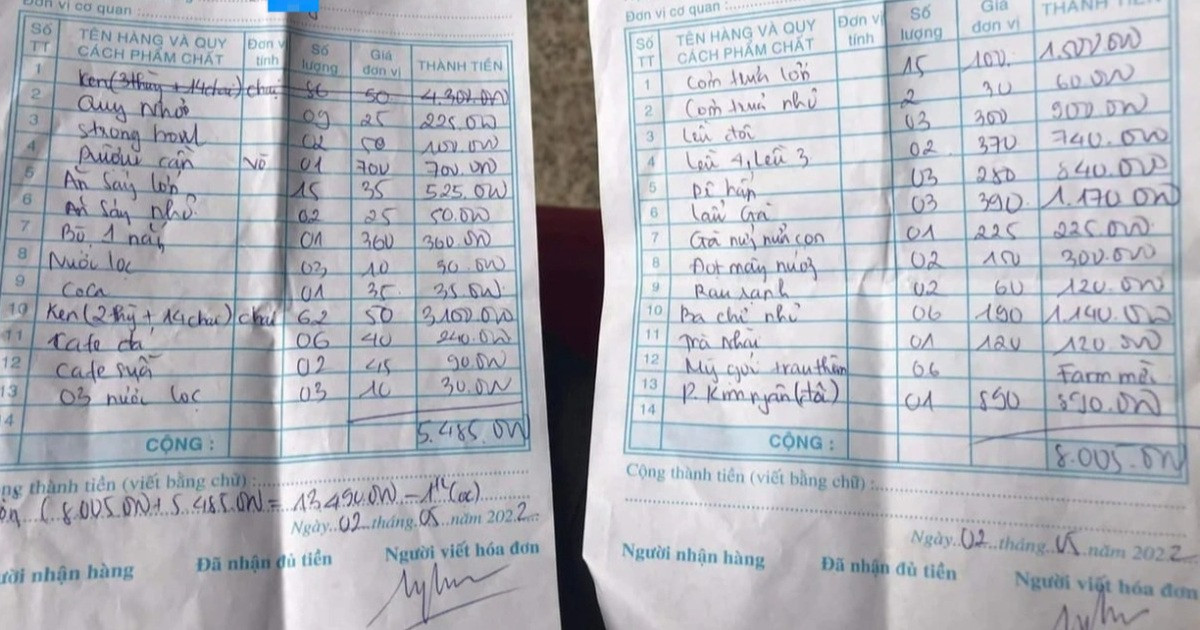 Đơn vị cơ quan :
Số TT TÊN HÀNG VÀ QUY CÁCH PHẨM CHẤT Đơn vị tính Số lượng Giá đơn vị THÀNH TIỀN
1 Ken(3thùy + 14chai) chai 86 50 4.300.000
2 Quy Nhở 09 25 225.000
3 Strong bowl 02 50 100.000
4 Rượu cần Vò 01 700 700.000
5 Ăn sáng lớn 15 35 525.000
6 Ăn sáng nhỏ 02 25 50.000
7 Bò 1 nắng 01 360 360.000
8 Nước lọc 03 10 30.000
9 Coca 01 35 35.000
10 Ken(2thùy + 14chai) chai 62 50 3.100.000
11 Cafe đá 06 40 240.000
12 Cafe sữa 02 45 90.000
13 03 nước lọc 03 10 30.000
14
CỘNG : 5.485.000
ng thành tiền (viết bằng chữ) :
(8.005.000 + 5.485.000 = 13.490.000 - 1tr (cọc)
Ngày 02 tháng 05 năm 2022
ười nhận hàng Đã nhận đủ tiền Người viết hóa đơn
Đơn vị cơ quan :
Số TT TÊN HÀNG VÀ QUY CÁCH PHẨM CHẤT Đơn vị tính Số lượng Giá đơn vị THÀNH TIỀN
1 Cơm trưa lớn 15 100. 1.500.000
2 Cơm trưa nhỏ 2 30 60.000
3 Lều đôi 03 300 900.000
4 Lều 4, lều 3 02 370 740.000
5 Dê hấp 03 280 840.000
6 Lẩu gà 03 390 1.170.000
7 Gà nướng nửa con 01 225 225.000
8 Đọt mây nướng 02 150 300.000
9 Rau rạnh 02 60 120.000
10 Ba chỉ nhỏ 06 190 1.140.000
11 Trà nhài 01 120 120.000
12 Mỳ gói trau thêm 06 Farm mời
13 P. Kim ngân (đôi) 01 890 890.000
14
CỘNG : 8.005.000
Cộng thành tiền (viết bằng chữ) :
Ngày 02 tháng 05 năm 2022
Người nhận hàng Đã nhận đủ tiền Người viết hóa đơn